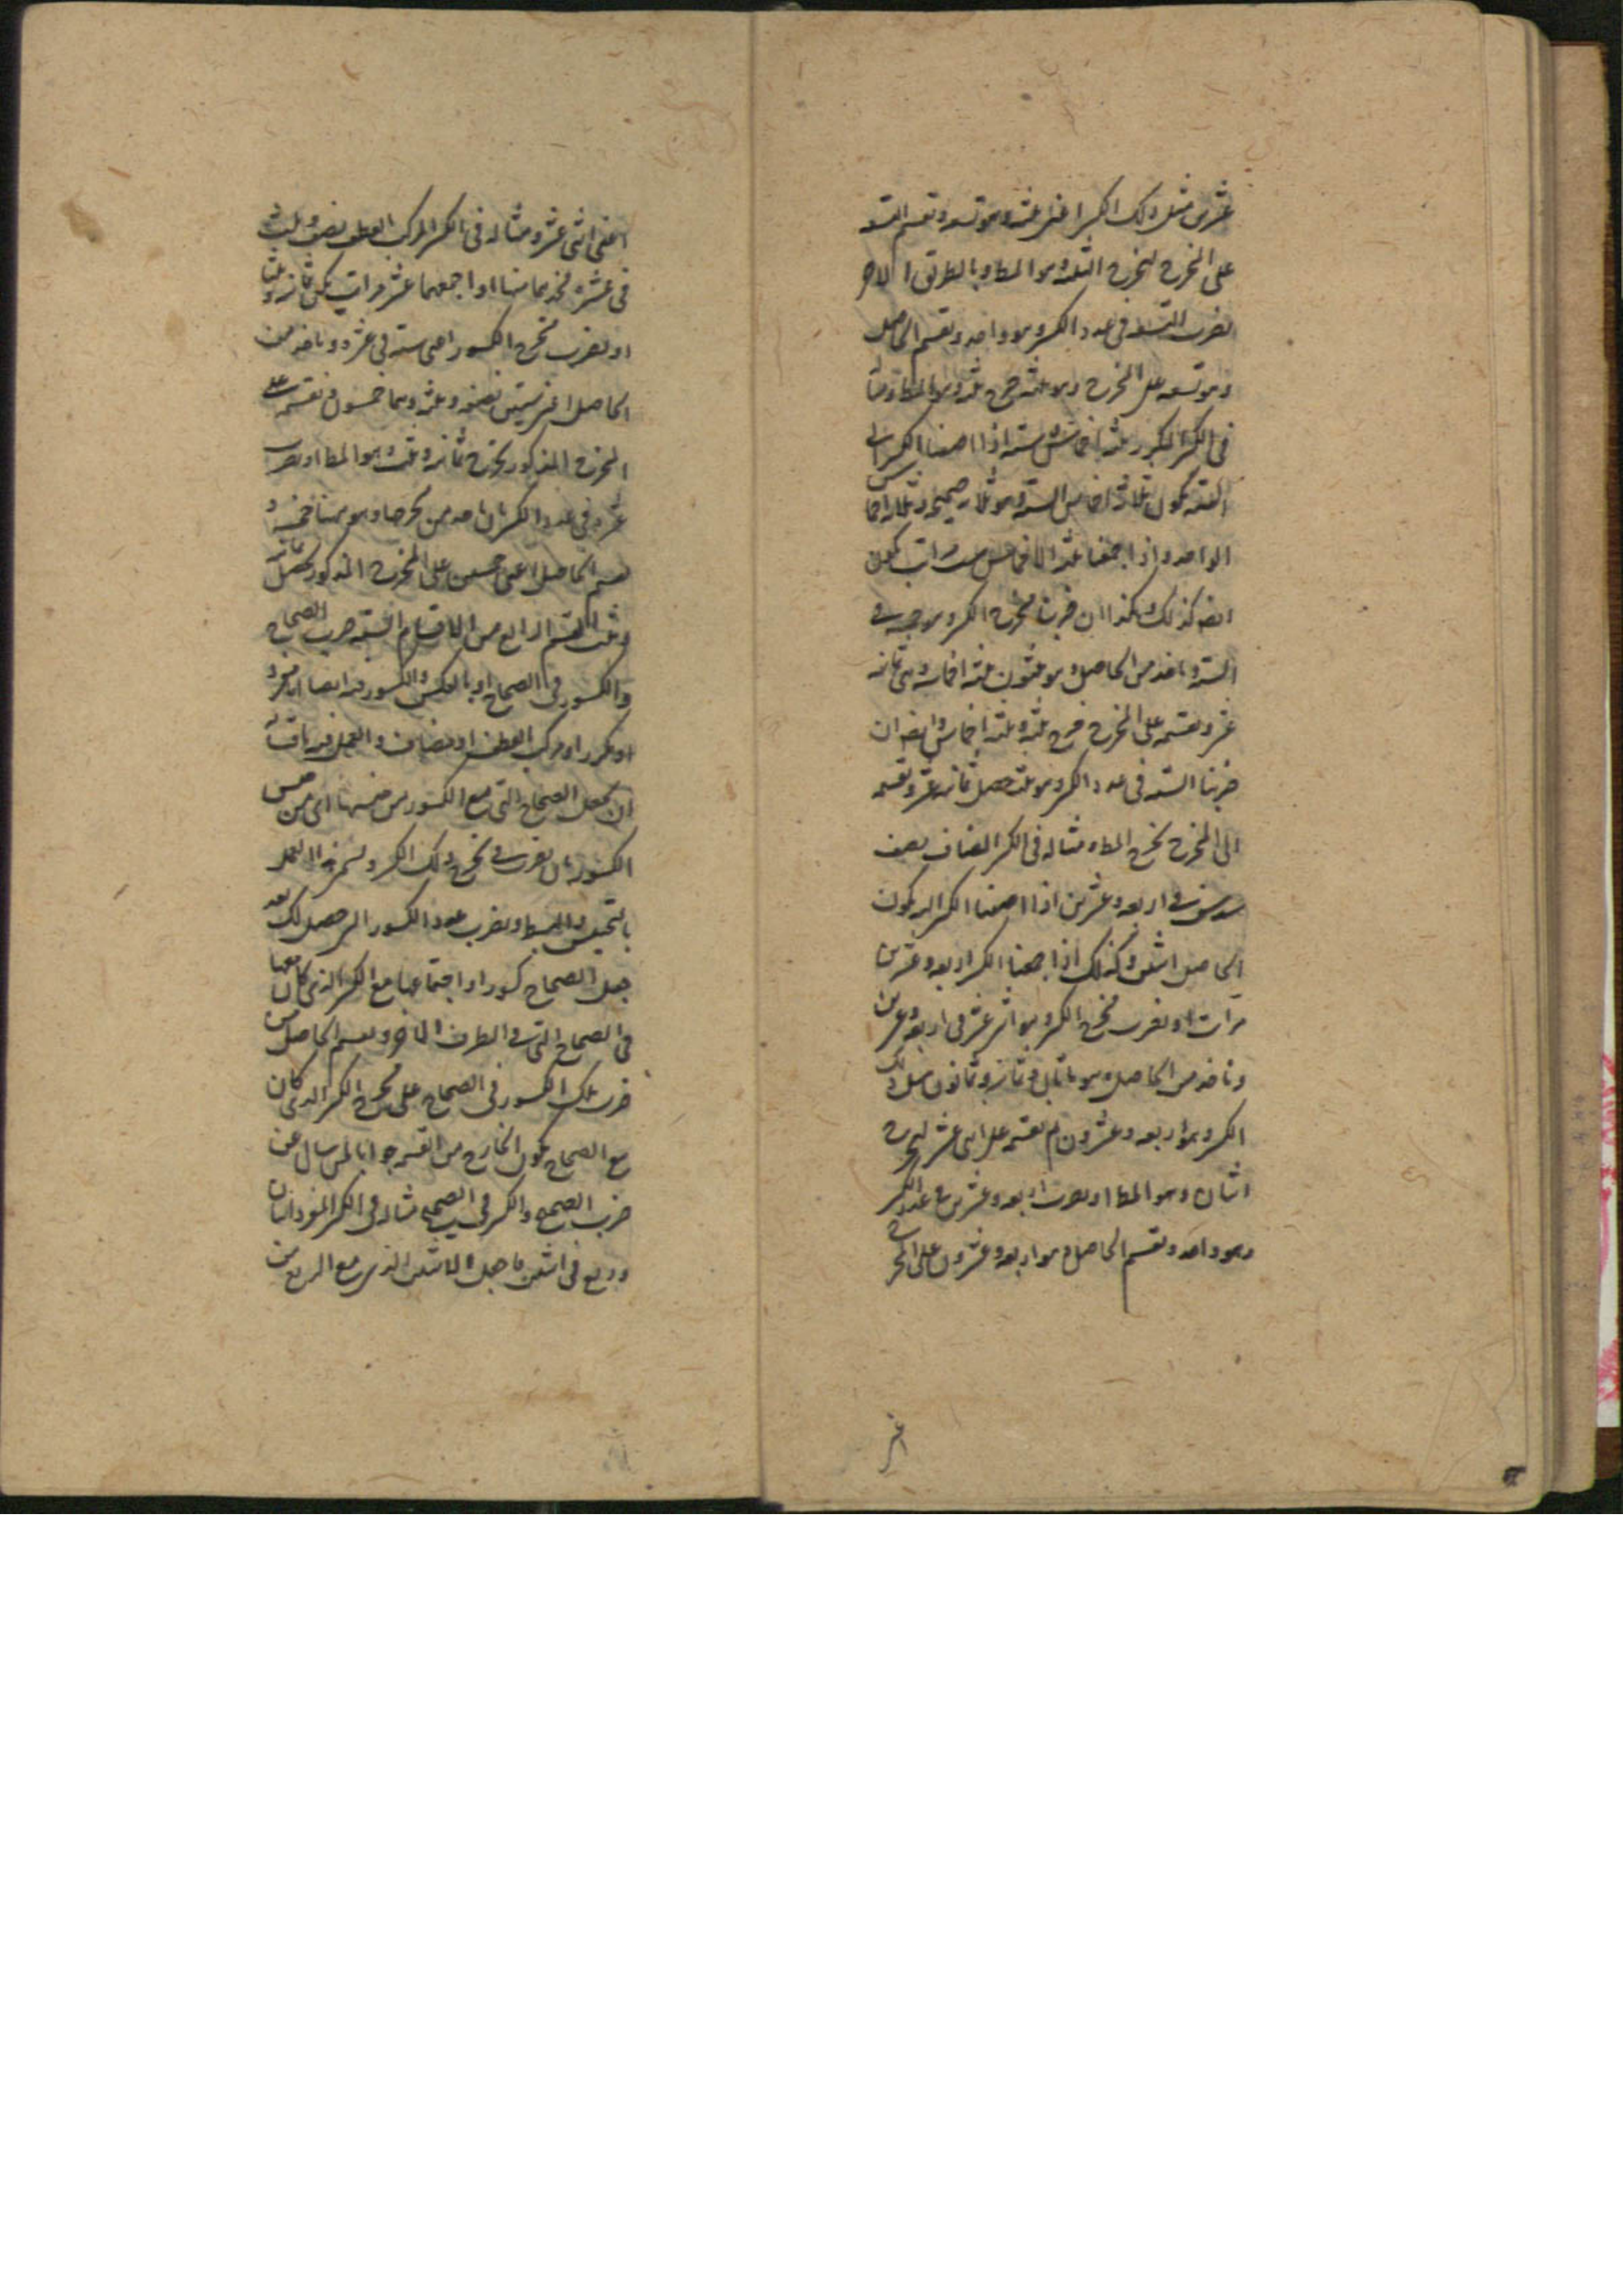 عشرين مثل ذلك الكسر اعنى ثلثه وهو تسعه ونقسم التسعه
على المخرج ليخرج الثلثه وهو المط وبالطريق الاخر
نضرب التسعه فى عدد الكسر وهو واحد ونقسم الحاصل
وهو تسعه على المخرج وهو ثلثه خرج ثلثه وهو المط ومثاله
فى الكسر المكرر ثلثه اخماس فى سته اذا اضفنا الكسر الى
السته يكون ثلاثة اخماس السته وهو ثلاثه صحيحه وثلاثه اخماس
الواحد واذا جمعنا ثلثه الاخماس ست مرات يكون
ايضا كذلك وهكذا ان ضربنا مخرج الكسر وهو خمسه فى
السته وناخذ من الحاصل وهو ثلثون ثلثه اخماسه وهى ثمانيه
عشر ونقسمه على المخرج خرج ثلثه وثلثه اخماس وايضا ان
ضربنا السته فى عدد الكسر وهو ثلثه حصل ثمانيه عشر ونقسمه
الى المخرج يخرج المط مثاله فى الكسر المضاف نصف
سدس فى اربعه وعشرين اذا اضفنا الكسر اليه يكون
الحاصل اثنين وكذلك اذا جمعنا الكسر اربعه وعشرين
مرات او نضرب مخرج الكسر وهو اثنى عشر فى اربعه وعشرين
وناخذ من الحاصل وهو مائتان وثمانيه وثمانون مثل ذلك
الكسر وهو اربعه وعشرون ثم نقسمه على اثنى عشر ليخرج
اثنان وهو المط او نضرب اربعه وعشرين فى عدد الكسر
وهو واحد ونقسم الحاصل وهو اربعه وعشرون على المخرج
اعنى
اعنى اثنى عشر ومثاله فى الكسر المركب العطف نصف وثلث
فى عشره نجد بما منها او اجمعهما عشر مرات يكن ثمانيه وثلثا
او نضرب مخرج الكسور اعنى سته فى عشره وناخذ من
الحاصل اعنى ستين نصفه وثلثه وهما خمسون فنقسمه على
المخرج المذكور يخرج ثمانيه وثلث وهو المط او نضرب
عشره فى عدد الكسر بان ناخذ من مخرجها وهو هنا خمسه و
نقسم الحاصل اعنى خمسين على المخرج المذكور يحصل ثمانيه
وثلث القسم الرابع من الاقسام التسعه ضرب الصحاح
والكسور فى الصحاح او بالعكس والكسور فيه ايضا اما مفرد
او مكرر او مركب العطف او مضاف والعمل فيه باقسامه
ان يجعل الصحاح التى مع الكسور من جنسها اى من جنس
الكسور بان نضرب فى مخرج ذلك الكسر ويسمى هذا العمل
بالتجنيس والبسط ونضرب عدد الكسور التى حصل لك بعد
جعل الصحاح كسورا واجتماعها مع الكسر الذى كان معها
فى الصحاح التى فى الطرف الاخر ونقسم الحاصل من
ضرب تلك الكسور فى الصحاح على مخرج الكسر الذى كان
مع الصحاح يكون الخارج من القسمه جوابا لمن سال عن
ضرب الصحيح والكسر فى الصحيح مثاله فى الكسر المفرد اثنان
وربع فى اثنين فاجعل الاثنين الذين مع الربع من